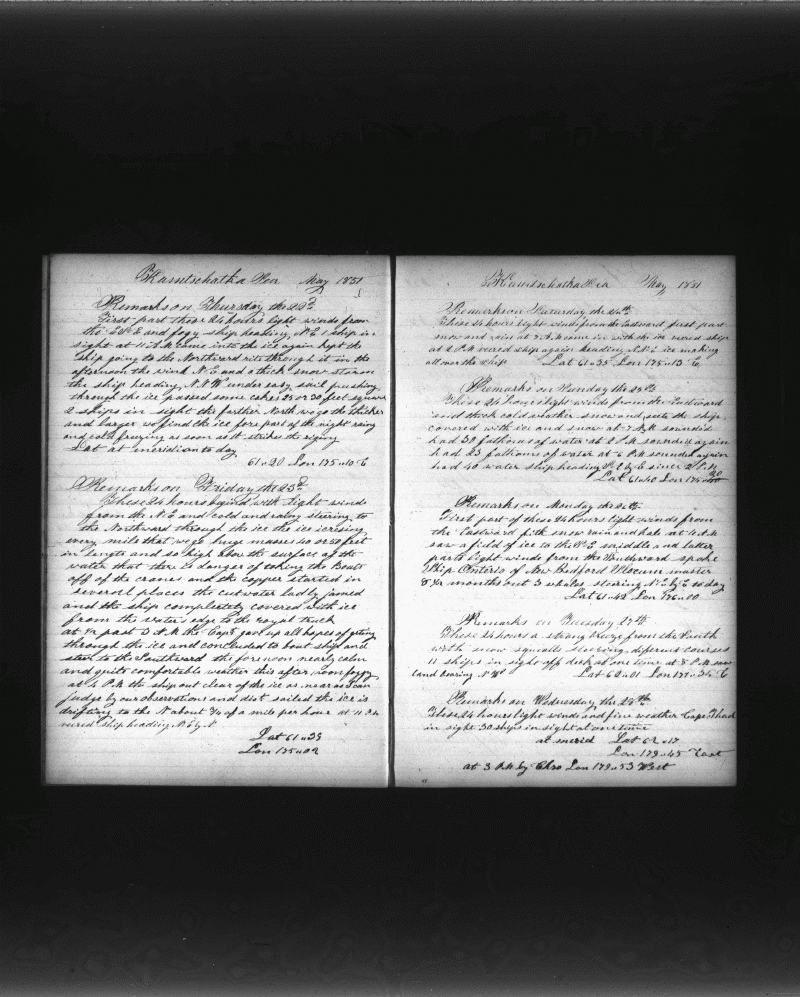 Kamtschatka Sea May 1851
Remarks on Thursday the 22d
First part these 24 hours light winds from
the E.S.E and fogy ship heading N.E 1 ship in
sight at 11 A.M came into the ice again kept the
ship going to the Northward rite through it in the
afternoon the wind N.E and a thick snow storm
the ship heading N.N.W under easy sail pushing
through the ice passed some cakes 25 or 30 feet square
2 ships in sight the farther North we go the thicker
and larger we find the ice fore part of the night rainy
and cold freezing as soon as it strikes the riging
Lat at meridian to day
61 " 20 Lon 175 " 10 E
Remarks on Friday the 23d
These 24 hours begind with light winds
from the N.E and cold and rainy steering to
the Northward through the ice the ice icrising
every mile that we go huge masses 40 or 50 feet
in length and so high above the surface of the
water that there is danger of taking the Boats
off of the cranes and the copper started in
several places the cutwater badly jamed
and the ship completely covered with ice
from the water edge to the royal truck
at ½ past 3 A.M the Capt gave up all hopes of geting
through the ice and concluded to bout ship and
steer to the Southward the forenoon nearly calm
and quite comfortable weather this after noon foggy
at 4 P.M the ship out clear of the ice as near as I can
judge by our observations and dist sailed the ice is
drifting to the N about ¾ of a mile per hour at 11 P.M
wered ship heading N.b.y N
Lat 61 " 39
Lon 175 " 02
Kamtschatka Sea May 1851
Remarks on Saturday the 24th
These 24 hours light winds from the Eastward first part
snow and rain at 7 A.M came ice with the ice wered ship
at 2 P.M wered ship again heading N.N.E ice making
all over the ship Lat 61 " 35 Lon 175 " 13 E
Remarks on Sunday the 25th
These 24 hours light winds from the Eastward
and thick cold weather snow and sleete the ship
covered with ice and snow at 7 A.M sounded
had 30 fathoms of water at 2 P.M sounded again
had 23 fathoms of water at 6 P.M sounded again
had 40 water ship heading S.E by E since 2 P.M
Lat 61 " 40 Lon 175 " 20
Remarks on Monday the 26th
First part of these 24 hours light winds from
the Eastward with snow rain and hale at 4 A.M
saw a field of ice to the N.E middle and latter
parts light winds from the Southward spoke
Ship Ontario of New Bedford Slocum master
8 ½ months out 3 whales steering N.E by E to day
Lat 61 " 42 Lon 176 " 00
Remarks on Tuesday 27th
These 24 hours a strong breeze from the South
with snow squalls steering diferent courses
11 ships in sight off deck at one time at 8 P.M saw
land bearing N.W Lat 62 " 01 Lon 177 " 35 E
Remarks on Wednesday the 28th
These 24 hours light winds and fine weather Cape Thad
in sight 30 ships in sight at one time
at merid Lat 62 " 17
Lon 179 " 45 East
at 3 P.M by Chro Lon 179 " 53 West